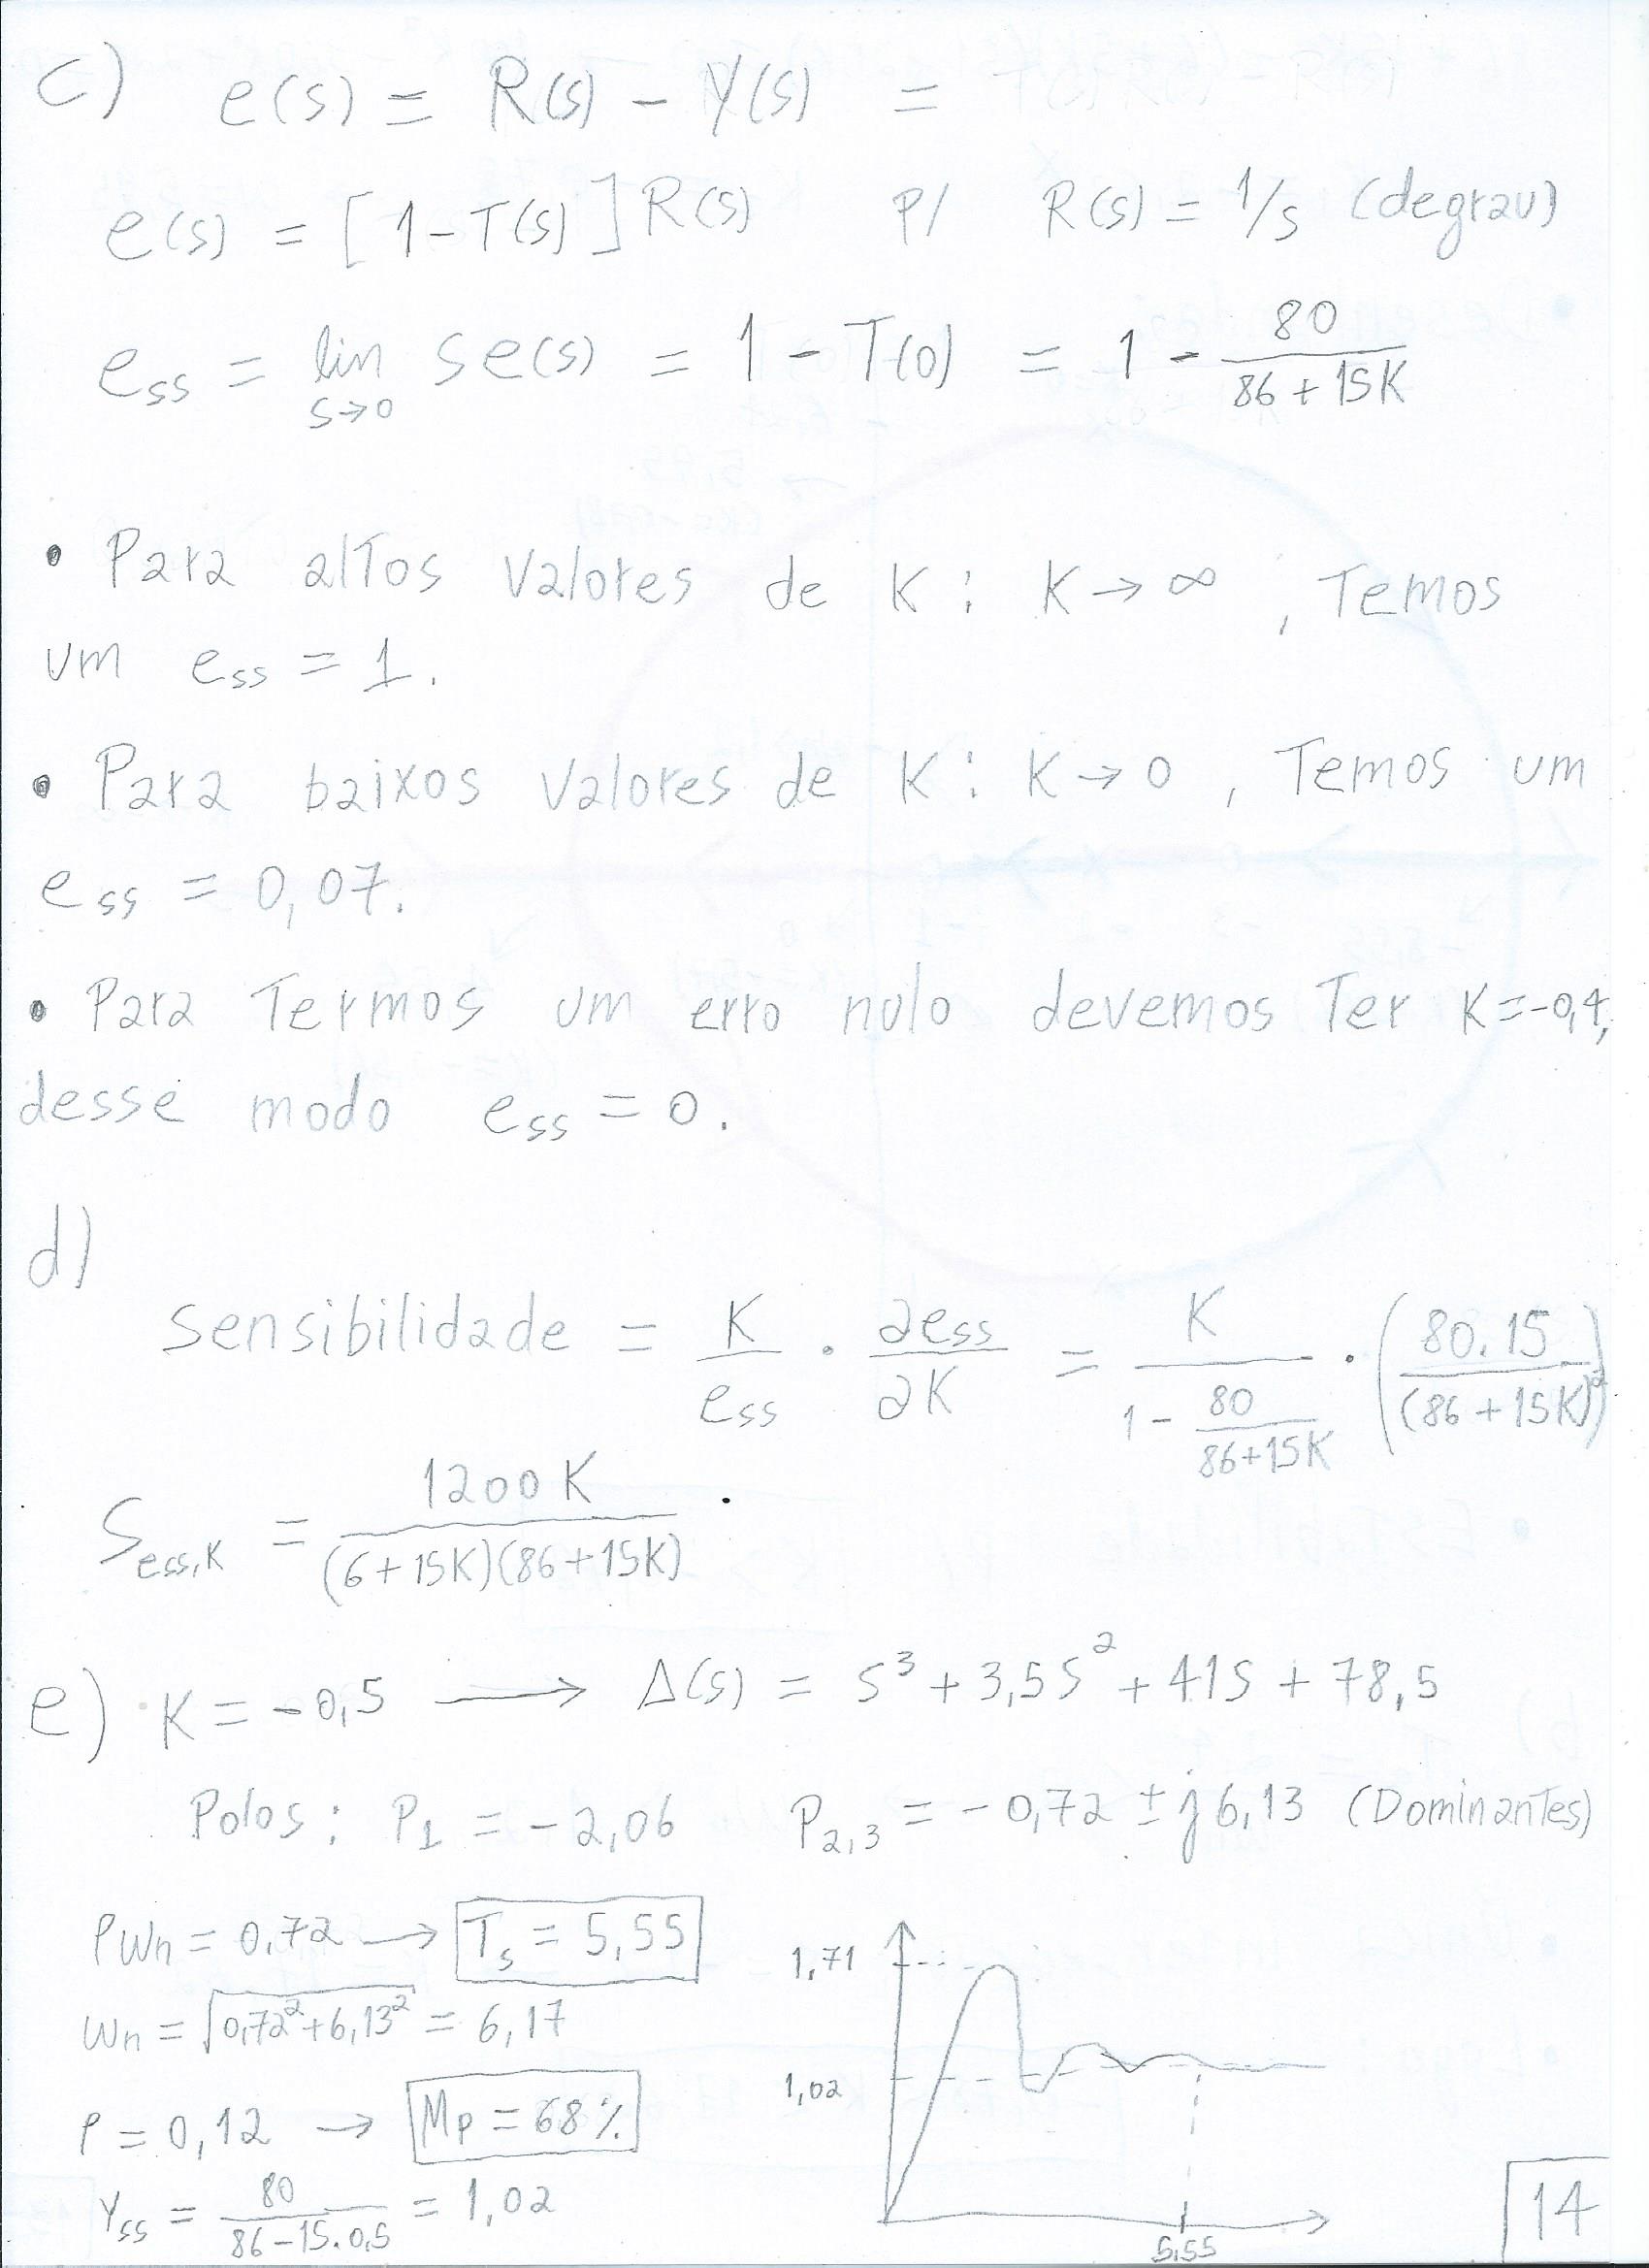 c) e(s) = R(s) - Y(s) =
e(s) = [1 - T(s)] R(s) P/ R(s) = 1/s (degrau)
e_ss = lim_{s→0} se(s) = 1 - T(0) = 1 - 80/(86 + 15K)
• Para altos valores de K: K → ∞, Temos
um e_ss = 1.
• Para baixos valores de K: K → 0, Temos um
e_ss = 0,07.
• Para Termos um erro nulo devemos Ter K = -0,4,
desse modo e_ss = 0.
d)
Sensibilidade = K/e_ss . ∂e_ss/∂K = K/(1 - 80/(86+15K)) . (80.15/(86+15K)²)
S_{ess,K} = 1200K/((6+15K)(86+15K)) .
e) K = -0,5 → Δ(s) = s³ + 3,5s² + 41s + 78,5
Polos: P₁ = -2,06 P₂,₃ = -0,72 ± j6,13 (Dominantes)
ρWn = 0,72 → T_s = 5,55
Wn = √(0,72² + 6,13²) = 6,17
ρ = 0,12 → Mp = 68%
Y_ss = 80/(86 - 15.0,5) = 1,02
1,71
1,02
5,55
14